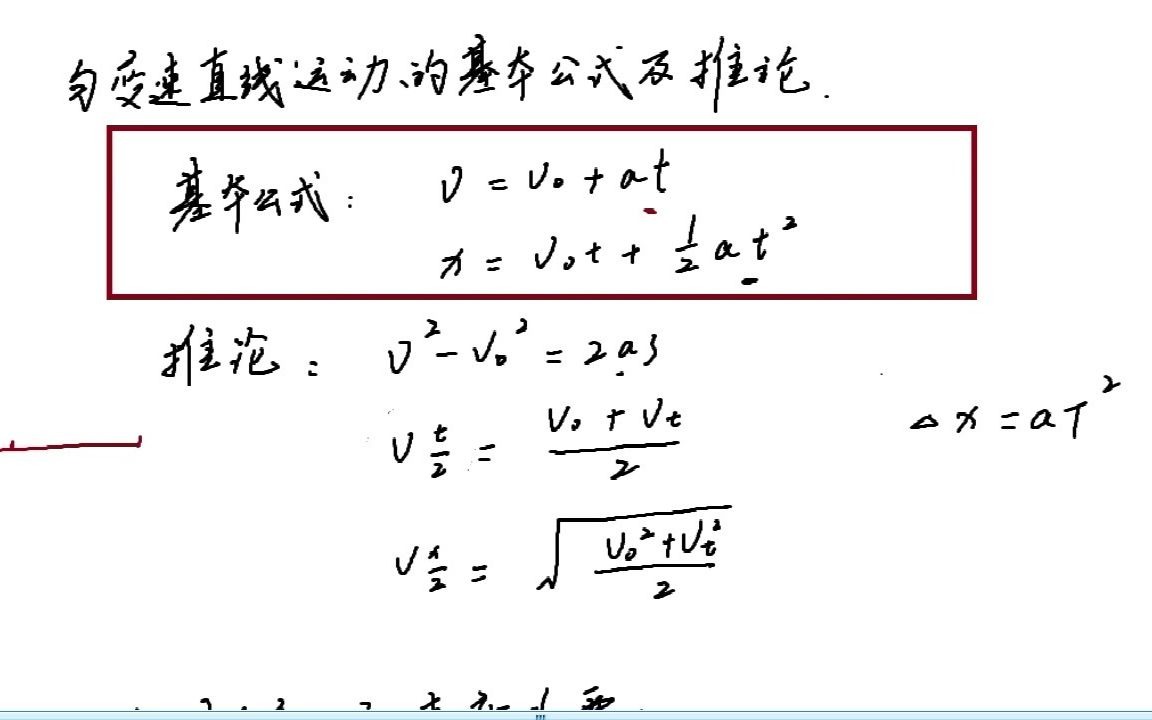 匀变速直线运动的基本公式及推论.
基本公式: v = v₀ + at
x = v₀t + 1/2 at²
推论: v² - v₀² = 2as
v t/2 = (v₀ + vt)/2
△x = aT²
v x/2 = √((v₀² + vt²)/2)